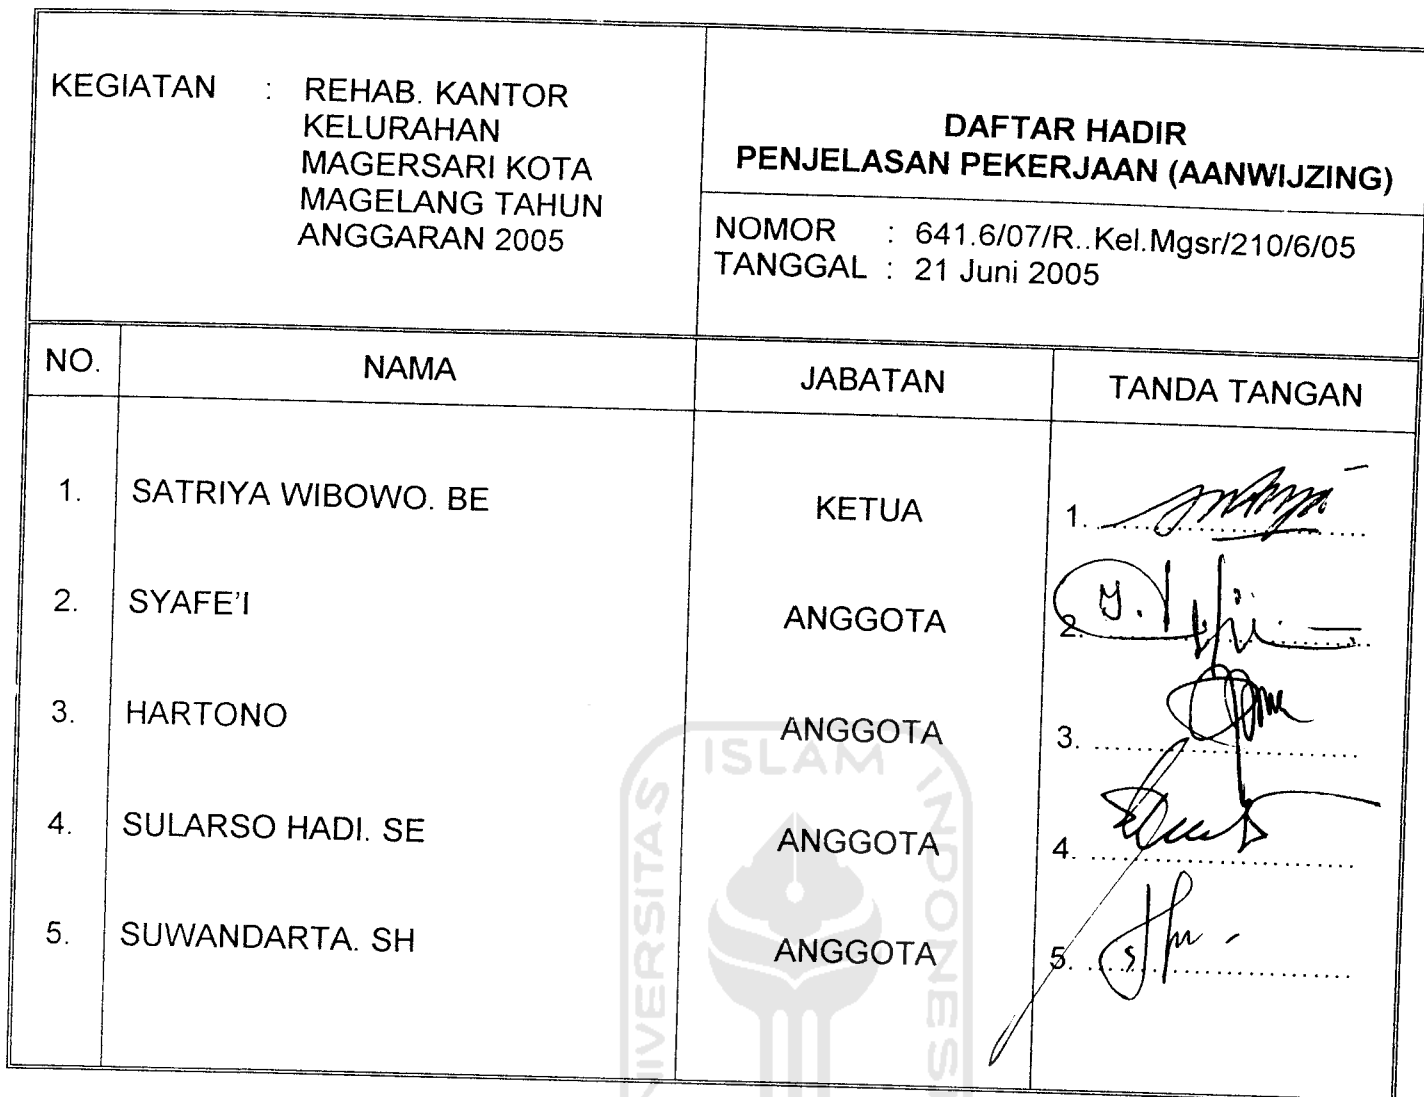 KEGIATAN : REHAB. KANTOR
KELURAHAN
MAGERSARI KOTA
MAGELANG TAHUN
ANGGARAN 2005
DAFTAR HADIR
PENJELASAN PEKERJAAN (AANWIJZING)
NOMOR : 641.6/07/R..Kel.Mgsr/210/6/05
TANGGAL : 21 Juni 2005
NO. NAMA JABATAN TANDA TANGAN
1. SATRIYA WIBOWO. BE KETUA 1.
2. SYAFE'I ANGGOTA 2.
3. HARTONO ANGGOTA 3.
4. SULARSO HADI. SE ANGGOTA 4.
5. SUWANDARTA. SH ANGGOTA 5.
ISLAM